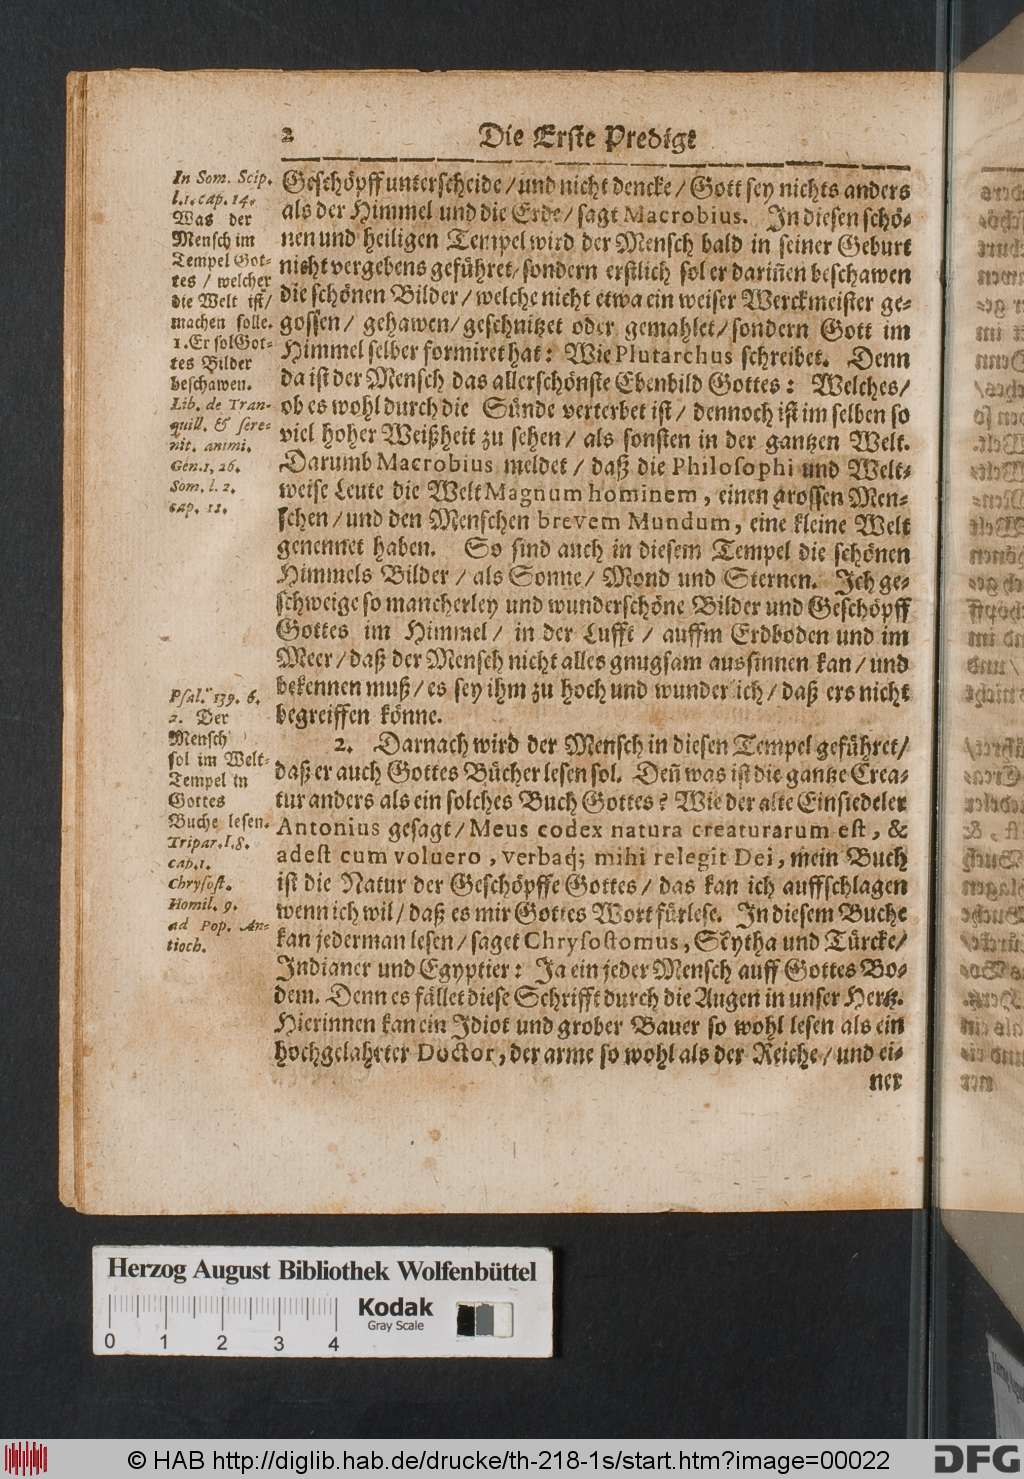 2 Die Erste Predigt
In Som. Scip.
l.1. cap. 14.
Was der
Mensch im
Tempel Got-
tes / welcher
die Welt ist/
machen solle.
1. Er sol Got-
tes Bilder
beschawen.
Lib. de Tran-
quill. & sere-
nit. animi.
Gen. 1, 26.
Som. l. 2.
cap. 12.
Psal. 139. 6.
2. Der
Mensch
sol im Welt-
Tempel in
Gottes
Buche lesen.
Tripar. l. 8.
cap. 1.
Chrysost.
Homil. 9.
ad Pop. An-
tioch.
Geschöpff unterscheide / und nicht dencke / Gott sey nichts anders
als der Himmel und die Erde / sagt Macrobius. In diesen schö-
nen und heiligen Tempel wird der Mensch bald in seiner Geburt
nicht vergebens geführet / sondern erstlich sol er dariñen beschawen
die schönen Bilder / welche nicht etwa ein weiser Werckmeister ge-
gossen / gehawen / geschnitzet oder gemahlet / sondern Gott im
Himmel selber formiret hat: Wie Plutarchus schreibet. Denn
da ist der Mensch das allerschönste Ebenbild Gottes: Welches /
ob es wohl durch die Sünde verterbet ist / dennoch ist im selben so
viel hoher Weißheit zu sehen / als sonsten in der gantzen Welt.
Darumb Macrobius meldet / daß die Philosophi und Welt-
weise Leute die Welt Magnum hominem, einen grossen Men-
schen / und den Menschen brevem Mundum, eine kleine Welt
genennet haben. So sind auch in diesem Tempel die schönen
Himmels Bilder / als Sonne / Mond und Sternen. Ich ge-
schweige so mancherley und wunderschöne Bilder und Geschöpff
Gottes im Himmel / in der Lufft / auffm Erdboden und im
Meer / daß der Mensch nicht alles gnugsam aussinnen kan / und
bekennen muß / es sey ihm zu hoch und wunderlich / daß ers nicht
begreiffen könne.
2. Darnach wird der Mensch in diesen Tempel geführet /
daß er auch Gottes Bücher lesen sol. Deñ was ist die gantze Crea-
tur anders als ein solches Buch Gottes? Wie der alte Einsiedeler
Antonius gesagt / Meus codex natura creaturarum est, &
adest cum voluero, verbaq; mihi relegit Dei, mein Buch
ist die Natur der Geschöpffe Gottes / das kan ich auffschlagen
wenn ich wil / daß es mir Gottes Wort fürlese. In diesem Buche
kan jederman lesen / saget Chrysostomus, Scytha und Türcke /
Indianer und Egyptier: Ja ein jeder Mensch auff Gottes Bo-
dem. Denn es fället diese Schrifft durch die Augen in unser Hertz.
Hierinnen kan ein Idiot und grober Bauer so wohl lesen als ein
hochgelahrter Doctor, der arme so wohl als der Reiche / und ei-
ner
Herzog August Bibliothek Wolfenbüttel
0 1 2 3 4
Kodak
Gray Scale
© HAB http://diglib.hab.de/drucke/th-218-1s/start.htm?image=00022
DFG